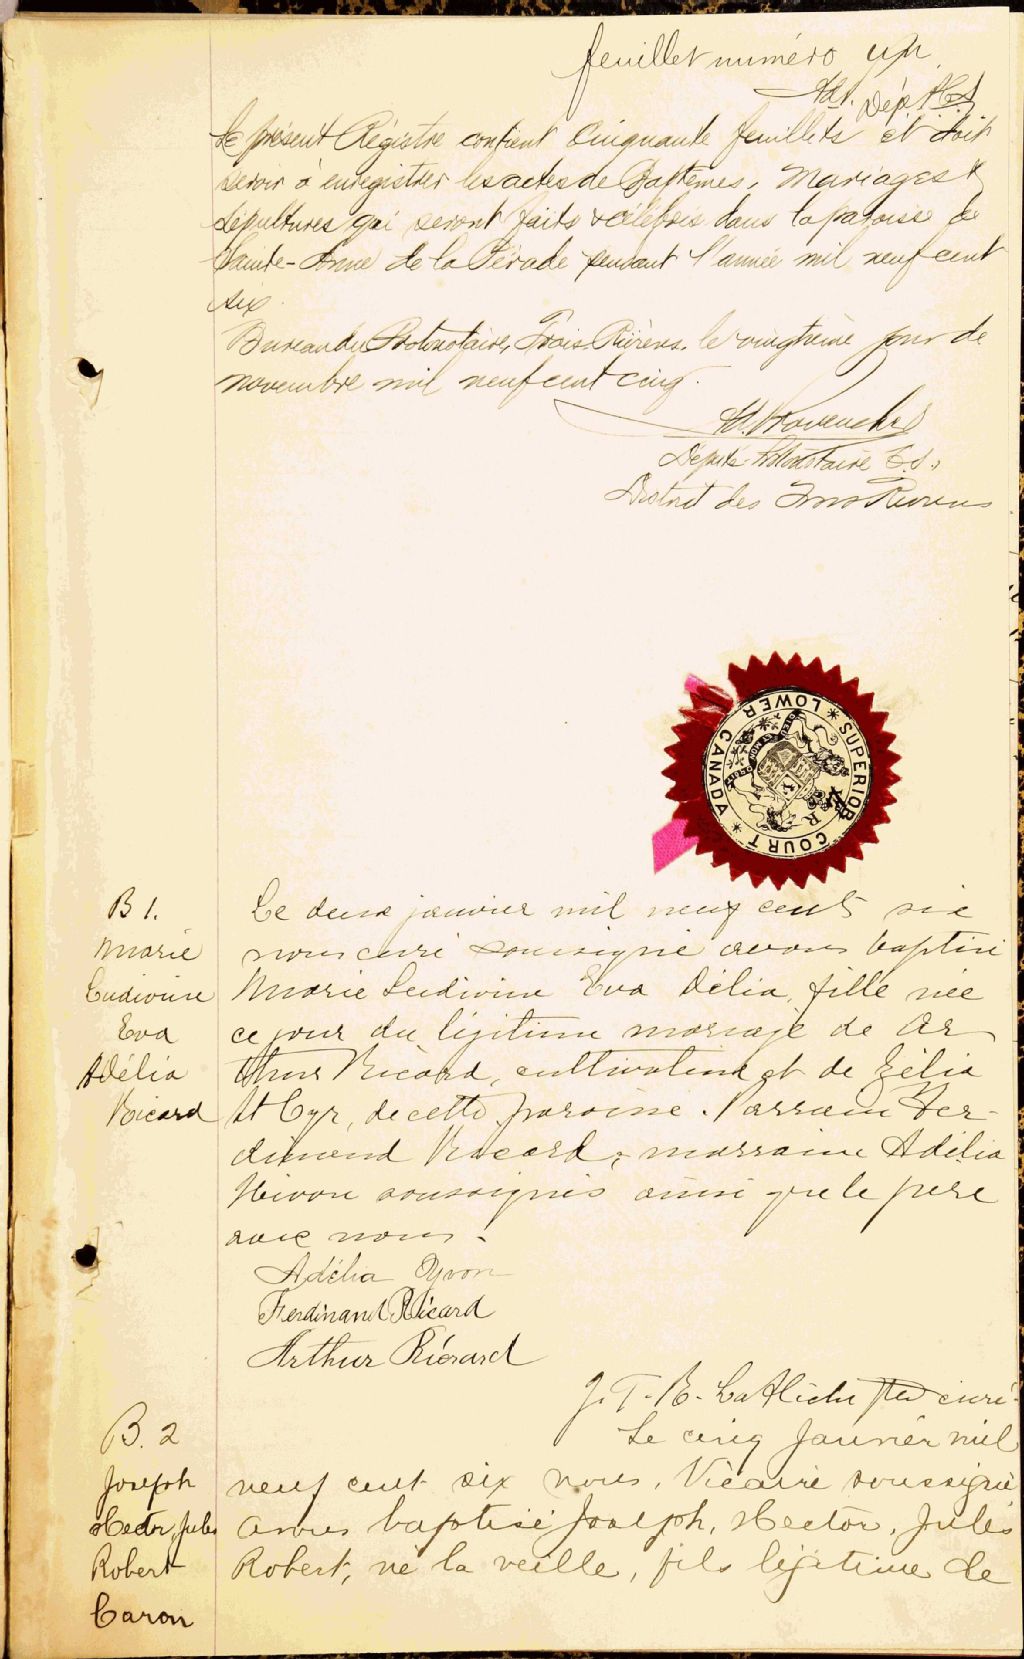 feuillet numéro un
Ad. P. Dép. P.C.S.
Le présent Régistre contient Cinquante feuillets et doit
servir à enregistrer les actes de Baptêmes, Mariages &
Sépultures qui seront faits & célébrés dans la paroisse de
Sainte-Anne de la Pérade pendant l'année mil neuf cent
six.
Bureau du Protonotaire, Trois Rivières, le vingtième jour de
novembre mil neuf cent cinq.
Ad. Provencher
Député Protonotaire C.S.
District des Trois Rivières
SUPERIOR COURT * LOWER CANADA *
B 1.
Marie
Ludivine
Eva
Adélia
Ricard
Le deux janvier mil neuf cent six
nous curé soussigné avons baptisé
Marie Ludivine Eva Délia, fille née
ce jour du légitime mariage de Ar
thur Ricard, cultivateur et de Zélia
St Cyr, de cette paroisse. Parrain Fer-
dinand Ricard, marraine Adélia
Hivon soussignés ainsi que le père
avec nous.
Adélia Yvon
Ferdinand Ricard
Arthur Ricard
J. T. R. Laflèche Ptre curé.
B. 2
Joseph
Hector, Jules
Robert
Caron
Le cinq Janvier mil
neuf cent six nous, Vicaire soussigné
avons baptisé Joseph, Hector, Jules
Robert, né la veille, fils légitime de